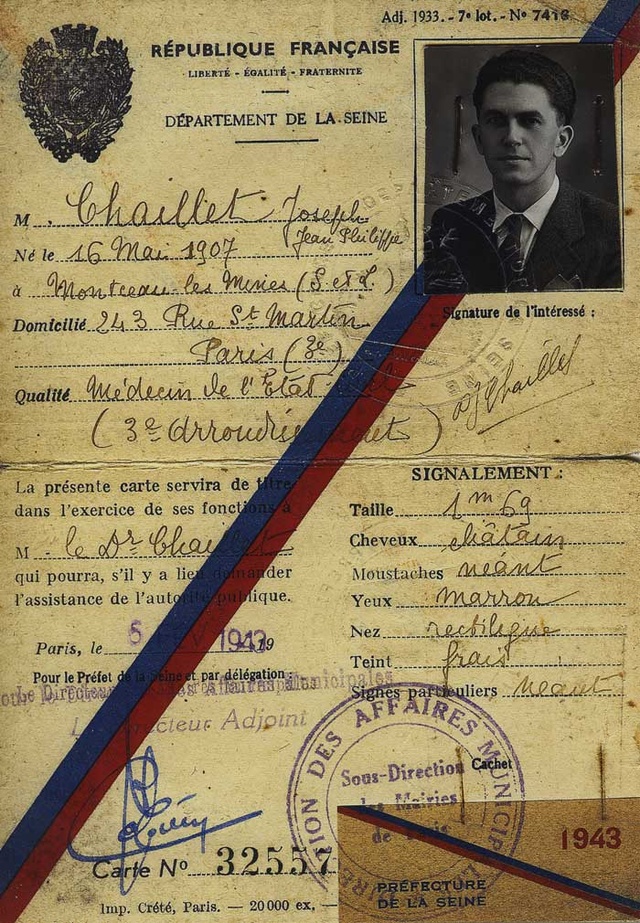 Adj. 1933. - 7e lot. - No 7416
RÉPUBLIQUE FRANÇAISE
LIBERTÉ - ÉGALITÉ - FRATERNITE
DÉPARTEMENT DE LA SEINE
M. Chaillet Joseph
Jean Philippe
Né le 16 Mai 1907
à Montceau-les Mines (S et L.)
Domicilié 243 Rue St Martin
Paris (3e)
Qualité Médecin de l'Etat
(3e Arrondissement)
Signature de l'intéressé :
Chaillet
La présente carte servira de titre
dans l'exercice de ses fonctions à
M. le Dr Chaillet
qui pourra, s'il y a lieu demander
l'assistance de l'autorité publique.
Paris, le 6 FEV 1943 19
Pour le Préfet de la Seine et par délégation :
Le Directeur des Affaires Municipales
Directeur Adjoint
SIGNALEMENT :
Taille 1m69
Cheveux châtain
Moustaches néant
Yeux marron
Nez rectiligne
Teint frais
Signes particuliers néant
Cachet
DES AFFAIRES MUNICIPALES
Sous-Direction
des Mairies
de Paris
1943
PRÉFECTURE
DE LA SEINE
Carte No 32557
Imp. Crété, Paris. — 20000 ex, —